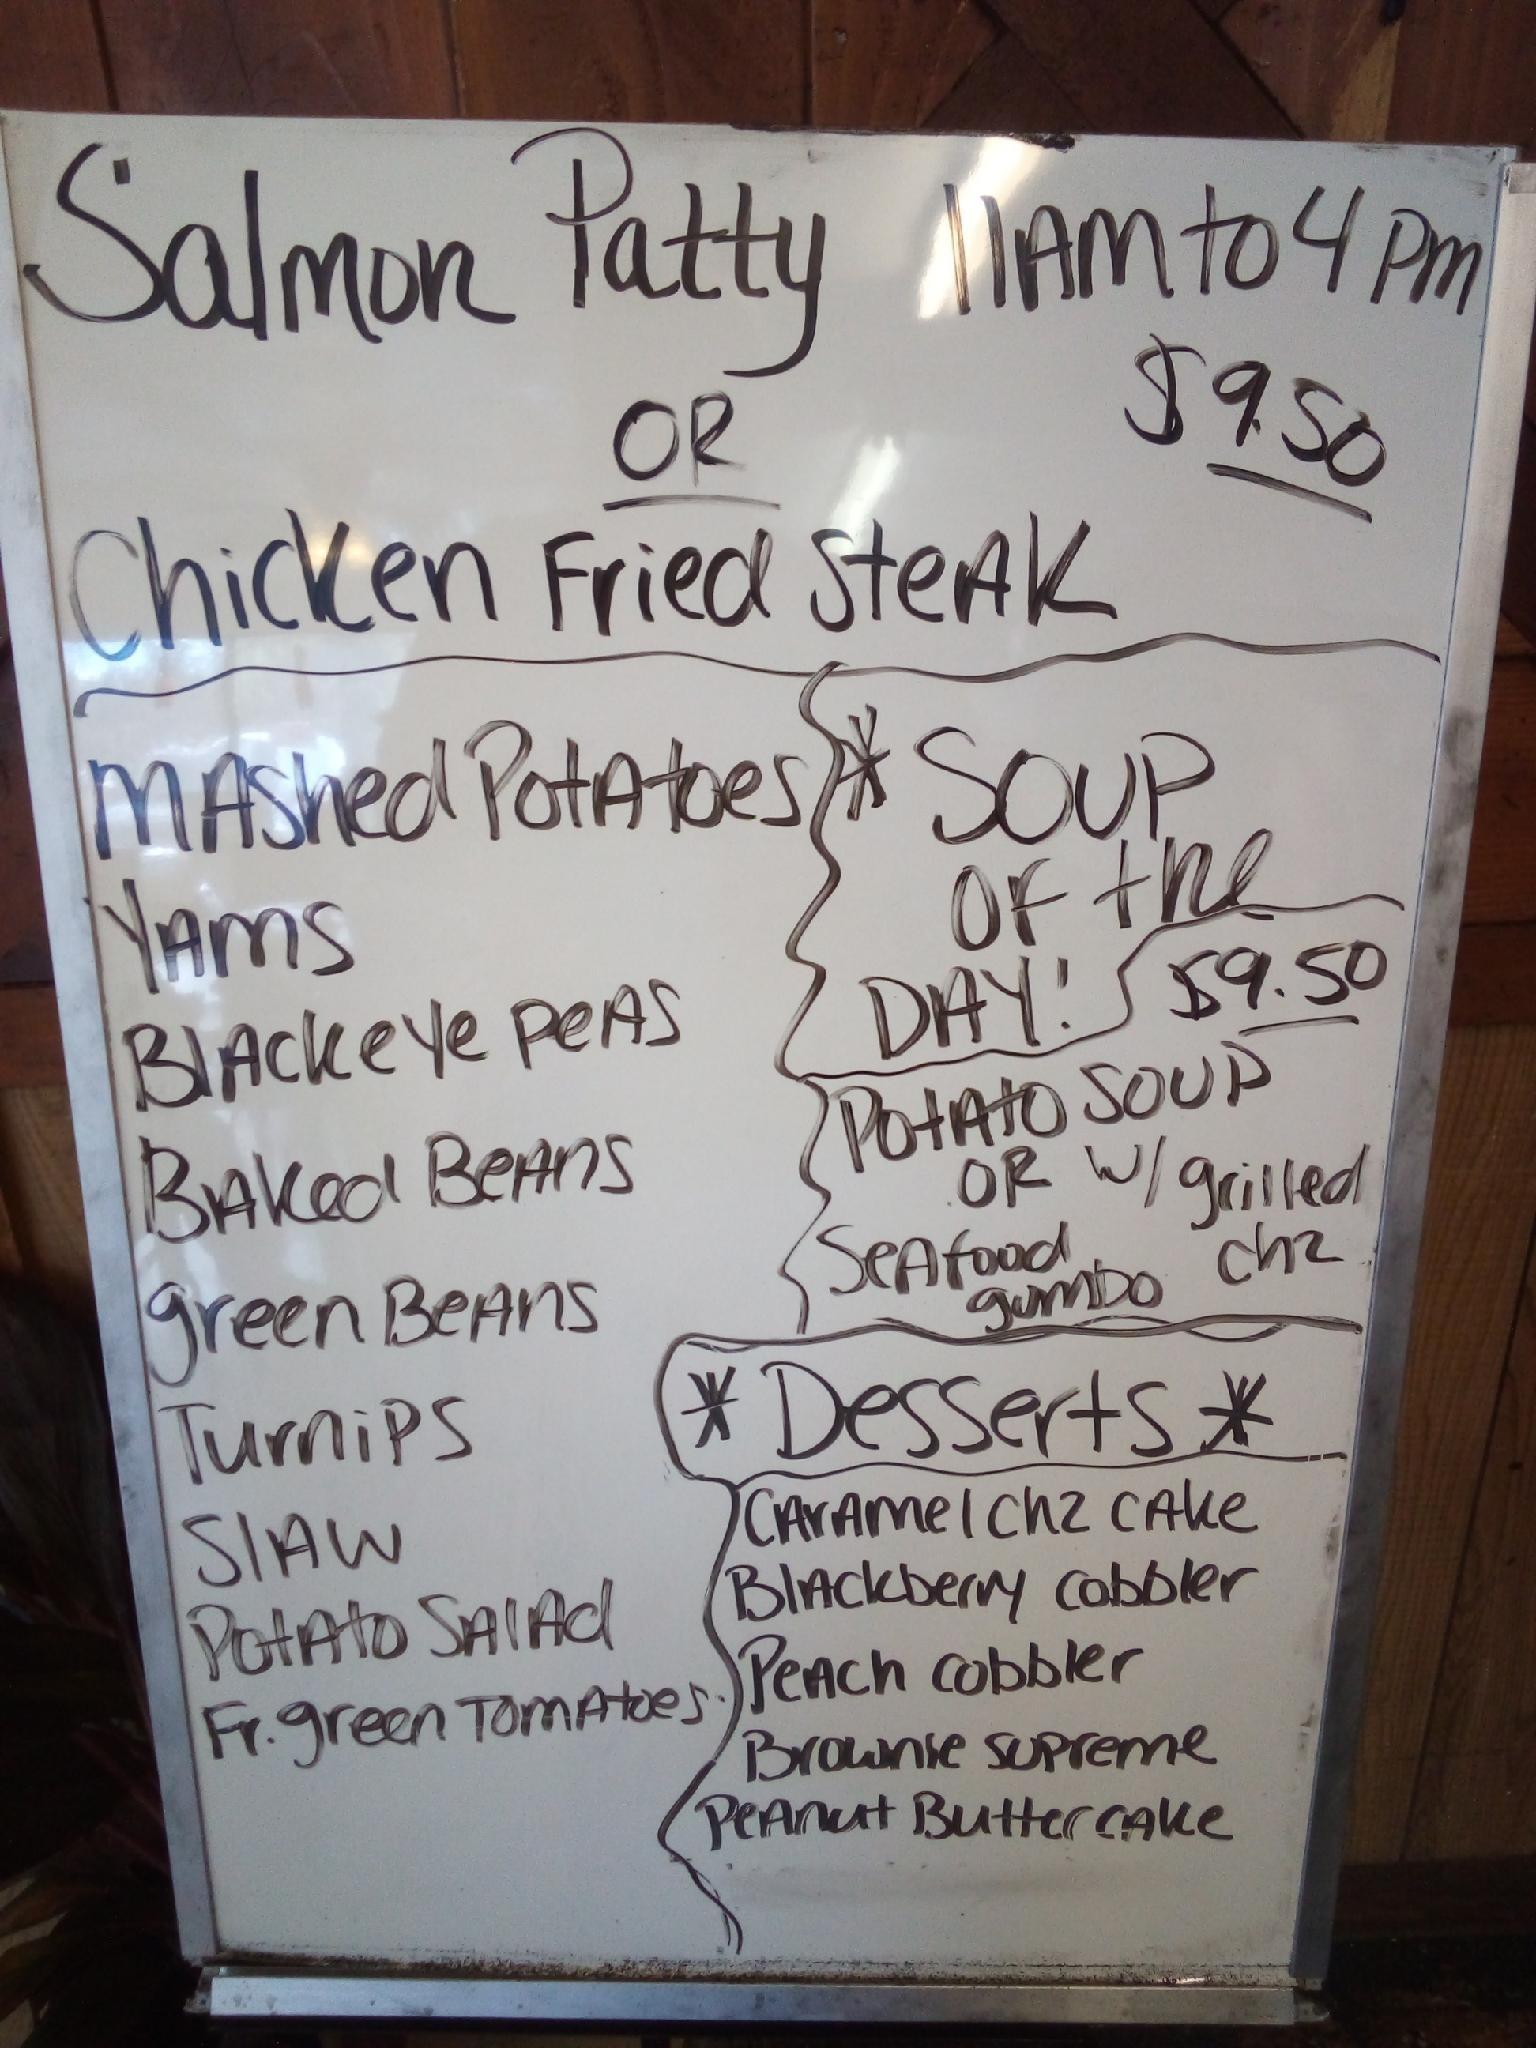 Salmon Patty 11AM to 4 PM
$9.50
OR
Chicken Fried Steak
Mashed Potatoes
Yams
Blackeye peas
Baked Beans
green Beans
Turnips
Slaw
Potato Salad
Fr. green Tomatoes.
* SOUP
OF the
DAY!
$9.50
Potato Soup
OR w/ grilled
Seafood chz
gumbo
* Desserts *
Caramel chz cake
Blackberry cobbler
Peach cobbler
Brownie supreme
Peanut Butter cake